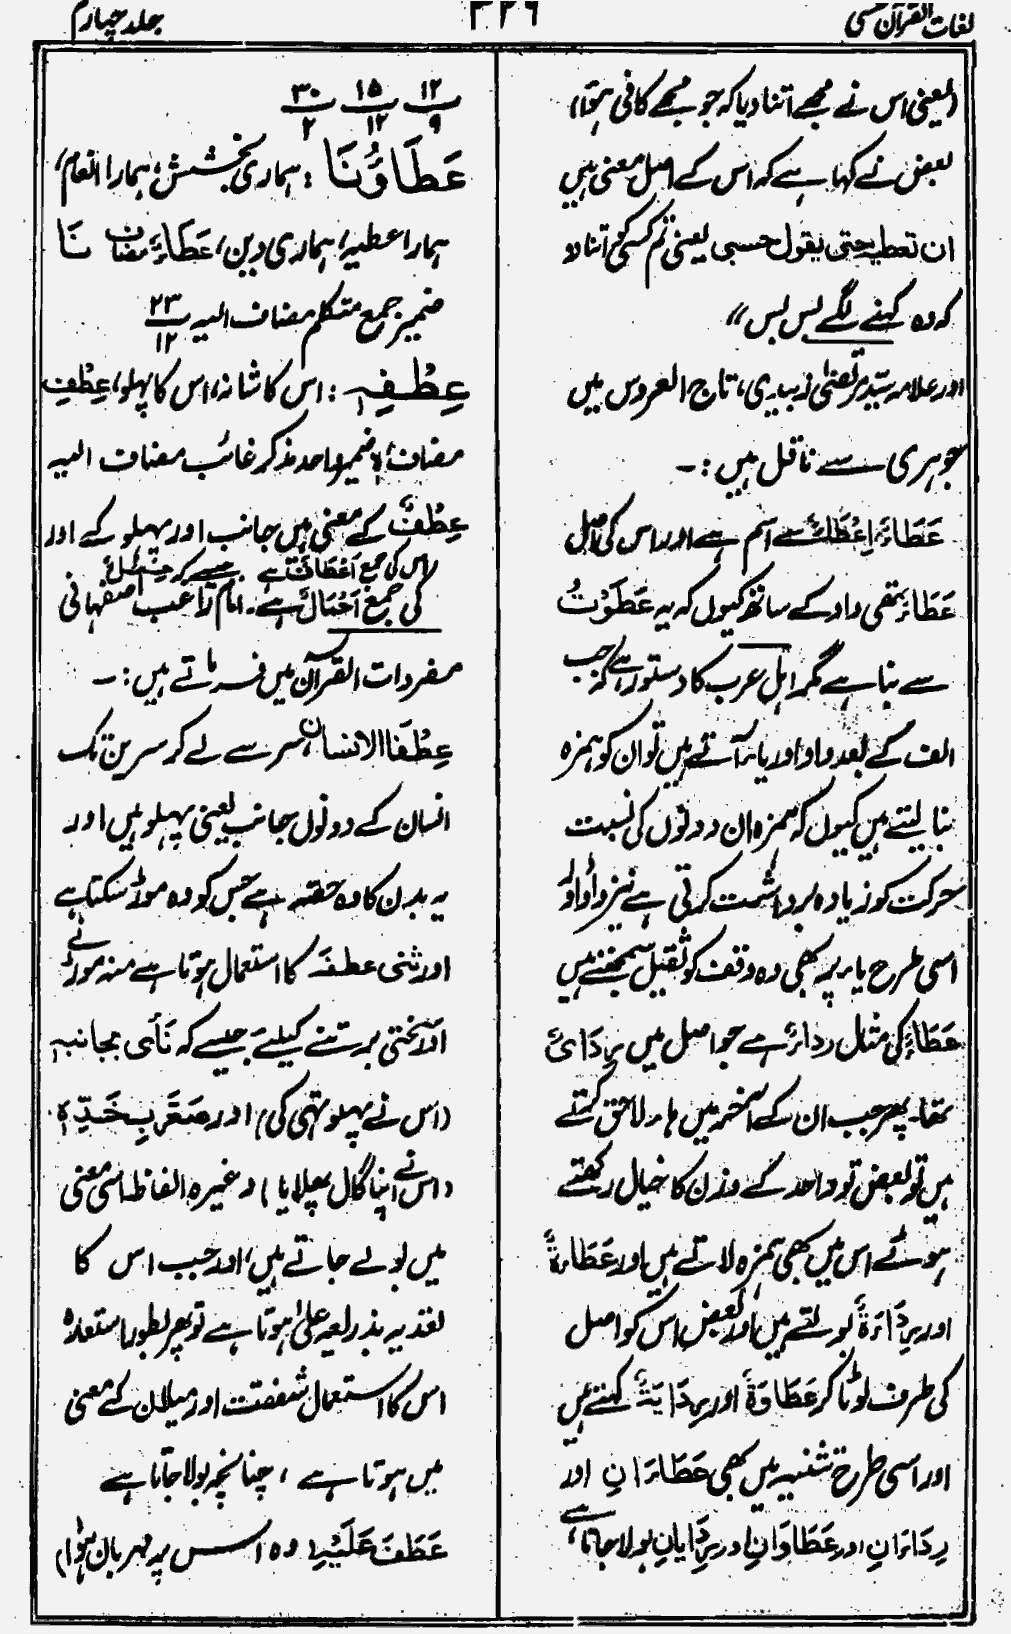 لغات القرآن
۳۲۶
جلد چہارم
(یعنی اس نے مجھے اتنا دیا کہ جو مجھے کافی ہوگیا)
بعض نے کہا ہے کہ اس کے اصل معنی ہیں
ان تعطیہ حتی یقول حسبی یعنی تم کسی کو اتنا دو
کہ وہ کہنے لگے بس بس"
اور علامہ سید مرتضیٰ زبیدی، تاج العروس میں
جوہری سے ناقل ہیں :-
عَطَاءٌ، اِعْطَاءٌ سے اسم ہے اور اس کی اصل
عَطَاوٌ تھی واو کے ساتھ کیوں کہ یہ عَطَوْتُ
سے بنا ہے مگر اہل عرب کا دستور ہے کہ جب
الف کے بعد واو اور یاء آتے ہیں تو ان کو ہمزہ
بنا لیتے ہیں کیوں کہ ہمزہ ان دونوں کی نسبت
حرکت کو زیادہ برداشت کرتی ہے نیز واو اور
اسی طرح یاء پر بھی وہ وقف کو ثقیل سمجھتے ہیں
عَطَاءٌ کی مثل رداءٌ ہے جو اصل میں رِدَایٌ
تھا۔ پھر جب ان کے آخر میں ہاء لاحق کرتے
ہیں تو بعض تو واحد کے وزن کا خیال رکھتے
ہوئے اس میں بھی ہمزہ لاتے ہیں اور عَطَاءَۃٌ
اور رِدَاءَۃٌ بولتے ہیں اور بعض اس کو اصل
کی طرف لوٹا کر عَطَاوَۃٌ اور رِدَایَۃٌ کہتے ہیں
اور اسی طرح تثنیہ میں بھی عَطَاءَانِ اور
رِدَاءَانِ اور عَطَاوَانِ اور رِدَایَانِ بولا جاتا ہے،
۱۲/۹ ۱۵/۱۲ ۳۰/۲
عَطَاؤُنَا : ہماری بخشش، ہمارا انعام،
ہمارا عطیہ، ہماری دین، عَطَاءُ مضاف نَا
ضمیر جمع متکلم مضاف الیہ ۲۳/۱۲
عِطْفِہٖ : اس کا شانہ، اس کا پہلو، عِطْفِ
مضاف ہٖ ضمیر واحد مذکر غائب مضاف الیہ
عِطْفٌ کے معنی ہیں جانب اور پہلو کے اور
اس کی جمع اَعْطَافٌ ہے جیسے کہ حِمْلٌ
کی جمع اَحْمَالٌ ہے۔ امام راغب اصفہانی
مفردات القرآن میں فرماتے ہیں :-
عِطْفَا الانسان سر سے لے کر سرین تک
انسان کے دونوں جانب یعنی پہلو ہیں اور
یہ بدن کا وہ حصہ ہے جس کو وہ موڑ سکتا ہے
اور ثنی عطفہٗ کا استعمال ہوتا ہے منہ موڑنے
اور سختی برتنے کیلئے جیسے کہ نَأٰی بجانبہ
(اس نے پہلو تہی کی) اور صَعَّرَ بِخَدِّہٖ
(اس نے اپنا گال پھلایا) وغیرہ الفاظ اسی معنی
میں بولے جاتے ہیں، اور جب اس کا
تعدیہ بذریعہ علیٰ ہوتا ہے تو پھر بطور استعارہ
اس کا استعمال شفقت اور میلان کے معنی
میں ہوتا ہے، چنانچہ بولا جاتا ہے
عَطَفَ عَلَیْہِ (وہ اس پر مہربان ہوا)